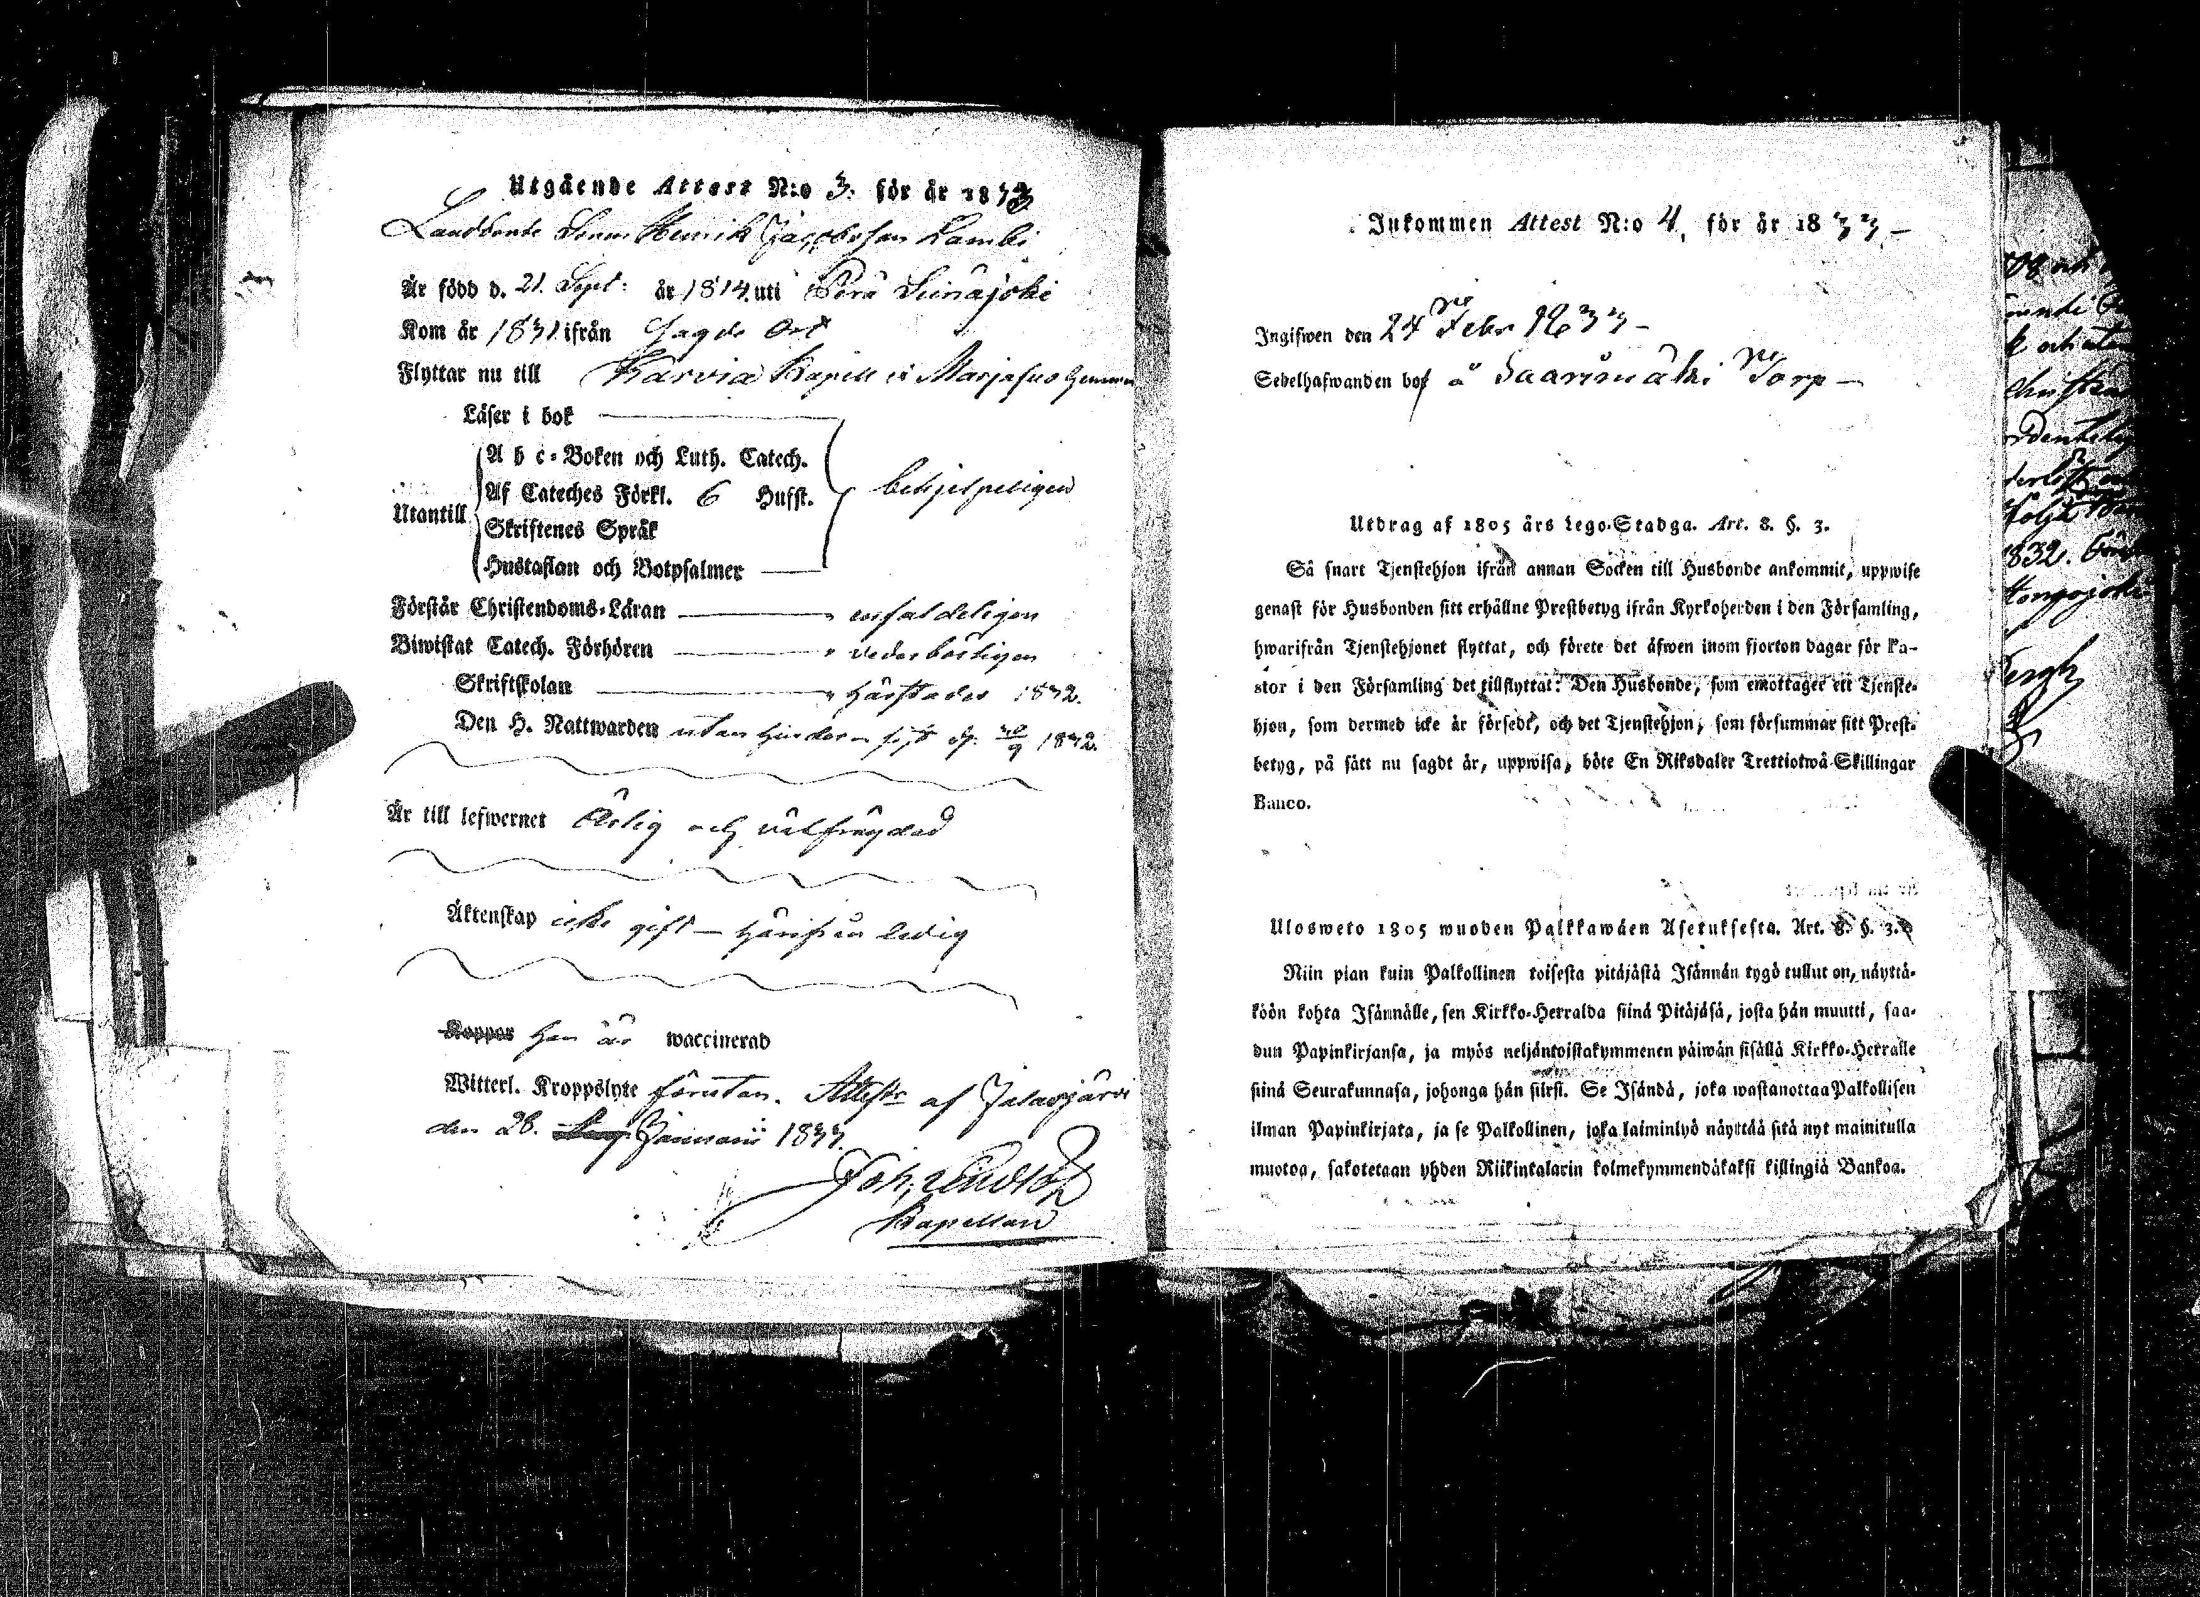 Utgående Attest N:o 3. för år 1833
Landbonde Sonen Henrik Jacobsson Lambi
Är född d. 21. Sept: år 1814. uti Perä Seinäjoki
Kom år 1831 ifrån sagde Ort
Flyttar nu till Karvia Kapell
Läser i bok
A b c-Boken och Luth. Catech.
Af Cateches Förkl. 6 Hufst.
behjelpeligen
Utantill
Skriftenes Språk
Hustaflan och Botpsalmer
Förstår Christendoms-Läran — enfaldeligen
Biwistat Catech. Förhören — vederbörligen
Skriftskolan — härstädes 1832.
Den H. Nattwarden utan hinder 1832.
Är till lefwernet Ärlig och välfrägdad
Äktenskap icke gift — härifrån ledig
Koppor han är waccinerad
Witterl. Kroppslyte förutan. af Jalasjärvi
den 28. Januarii 1833.
Kapellan
Inkommen Attest N:o 4. för år 1833 —
Ingifwen den 24 Febr 1833 —
Sedelhafwanden bor å Saarimäki Torp —
Utdrag af 1805 års Lego-Stadga. Art. 8. §. 3.
Så snart Tjenstehjon ifrån annan Socken till Husbonde ankommit, uppwise
genast för Husbonden sitt erhållne Prestbetyg ifrån Kyrkoherden i den Församling,
hwarifrån Tjenstehjonet flyttat, och förete det äfwen inom fjorton dagar för Pa-
stor i den Församling det tillflyttat: Den Husbonde, som emottager ett Tjenste-
hjon, som dermed icke är försedt, och det Tjenstehjon, som försummar sitt Prest-
betyg, på sätt nu sagdt är, uppwisa, böte En Riksdaler Trettiotwå Skillingar
Banco.
Ulosweto 1805 wuoden Palkkawäen Asetuksesta. Art. 8. §. 3.
Niin pian kuin Palkollinen toisesta pitäjästä Isännän tygö tullut on, näyttä-
köön kohta Isännälle, sen Kirkko-Herralda siinä Pitäjäsä, josta hän muutti, saa-
dun Papinkirjansa, ja myös neljäntoistakymmenen päiwän sisällä Kirkko-Herralle
siinä Seurakunnasa, johonga hän siirsi. Se Isändä, joka wastanottaa Palkollisen
ilman Papinkirjata, ja se Palkollinen, joka laiminlyö näyttää sitä nyt mainitulla
muotoa, sakotetaan yhden Riikintalarin kolmekymmendäkaksi killingiä Bankoa.